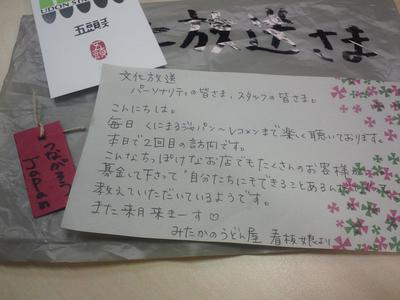 放送さま
文化放送
パーソナリティの皆さま、スタッフの皆さま。
こんにちは。
毎日 くにまるジャパン〜レコメンまで楽しく聴いております。
本日で2回目の訪問です。
こんなちっぽけなお店でもたくさんのお客様が
募金して下さって"自分たちにもできることあるんだ
教えていただいているようです。
また来月来まーす♡
みたかのうどん屋 看板娘より
つながろう
Japan